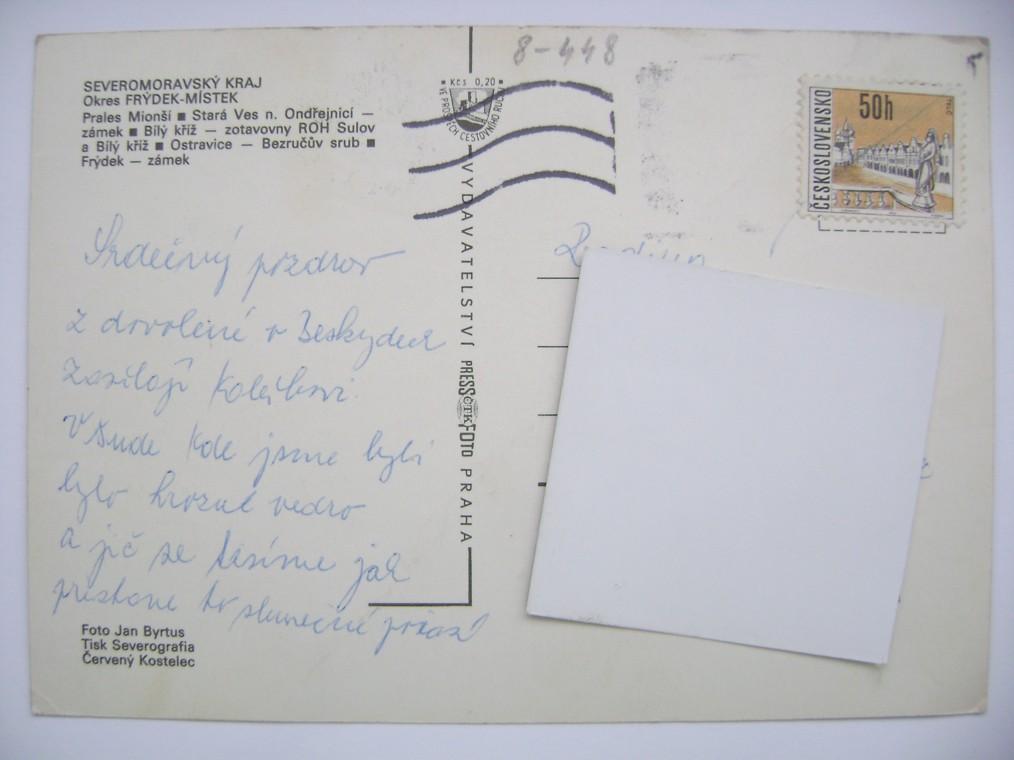 8-448
SEVEROMORAVSKÝ KRAJ
Okres FRÝDEK-MÍSTEK
Prales Mionší ■ Stará Ves n. Ondřejnicí —
zámek ■ Bílý kříž — zotavovny ROH Sulov
a Bílý kříž ■ Ostravice — Bezručův srub ■
Frýdek — zámek
Srdečný pozdrav
z dovolené v Beskydech
zasílají
Všude kde jsme byli
bylo hrozné vedro
a jič se těsíme jak
přestane to slunečné počasí
Foto Jan Byrtus
Tisk Severografia
Červený Kostelec
Kčs 0,20
VE PROSPĚCH CESTOVNÍHO RUCHU
VYDAVATELSTVÍ PRESSFOTO PRAHA
ČTK
ČESKOSLOVENSKO
50h
TELČ